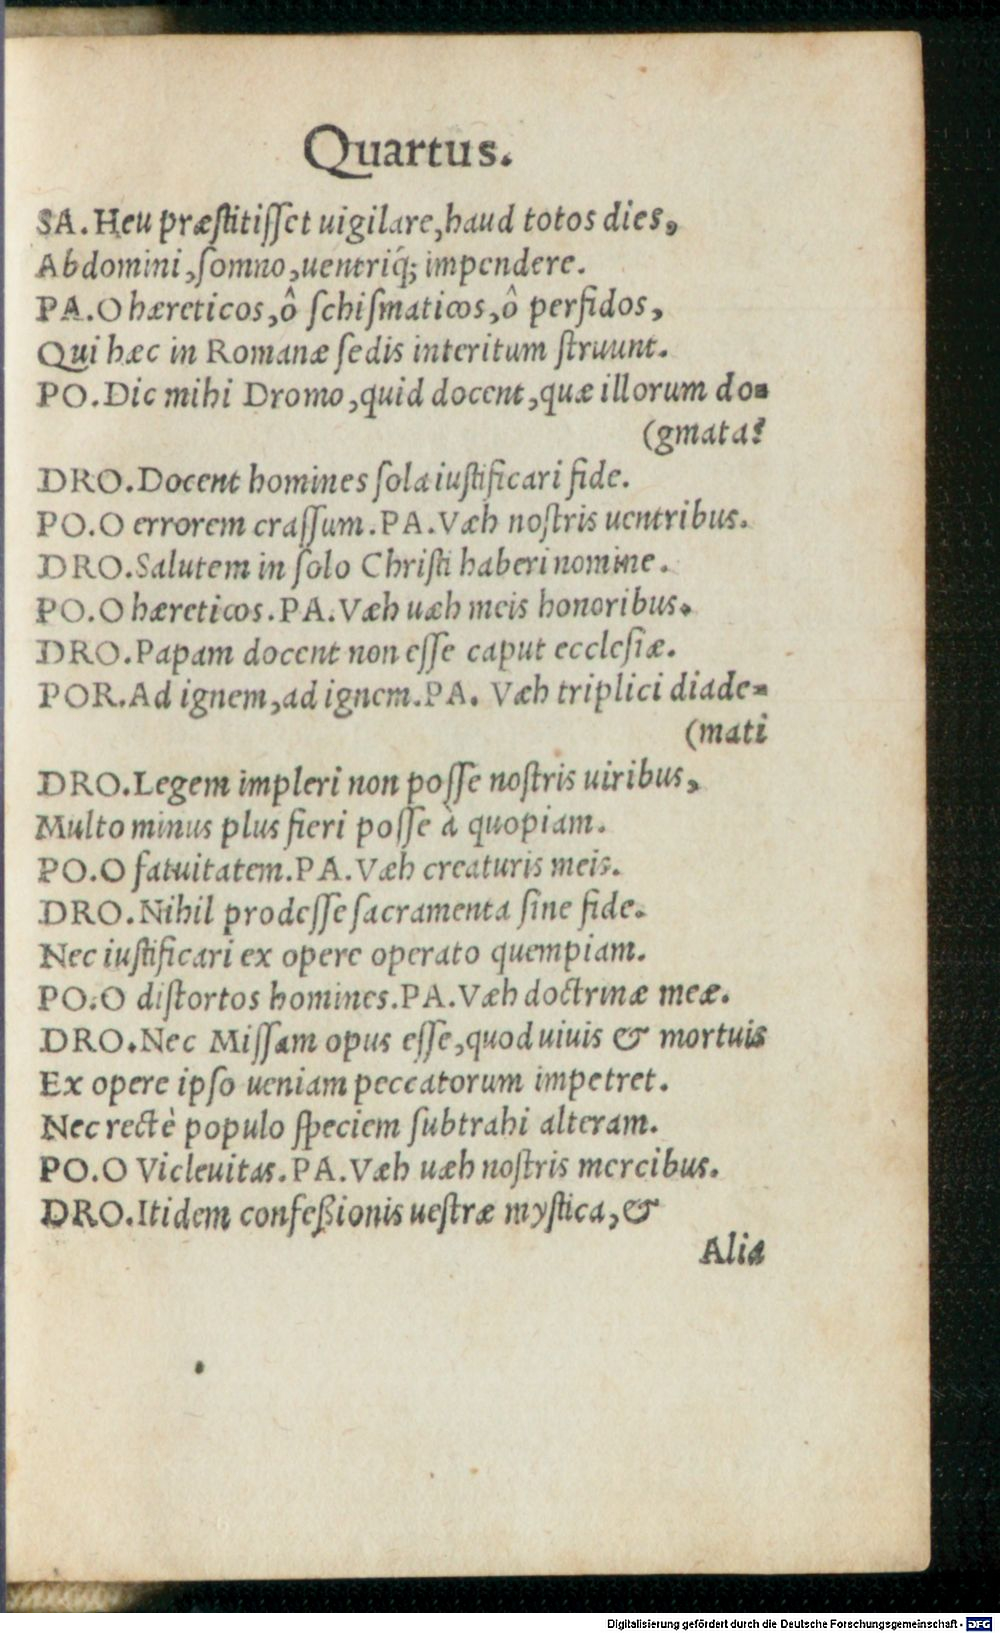 Quartus.
SA. Heu præstitisset uigilare, haud totos dies,
Abdomini, somno, uentriq́; impendere.
PA. O hæreticos, ô schismaticos, ô perfidos,
Qui hæc in Romanæ sedis interitum struunt.
PO. Dic mihi Dromo, quid docent, quæ illorum do-
(gmata?
DRO. Docent homines sola iustificari fide.
PO. O errorem crassum. PA. Væh nostris uentribus.
DRO. Salutem in solo Christi haberi nomine.
PO. O hæreticos. PA. Væh uæh meis honoribus.
DRO. Papam docent non esse caput ecclesiæ.
POR. Ad ignem, ad ignem. PA. Væh triplici diade-
(mati
DRO. Legem impleri non posse nostris uiribus,
Multo minus plus fieri posse à quopiam.
PO. O fatuitatem. PA. Væh creaturis meis.
DRO. Nihil prodesse sacramenta sine fide.
Nec iustificari ex opere operato quempiam.
PO. O distortos homines. PA. Væh doctrinæ meæ.
DRO. Nec Missam opus esse, quod uiuis & mortuis
Ex opere ipso ueniam peccatorum impetret.
Nec rectè populo speciem subtrahi alteram.
PO. O Vicleuitas. PA. Væh uæh nostris mercibus.
DRO. Itidem confeßionis uestræ mystica, &
Alia
Digitalisierung gefördert durch die Deutsche Forschungsgemeinschaft - DFG